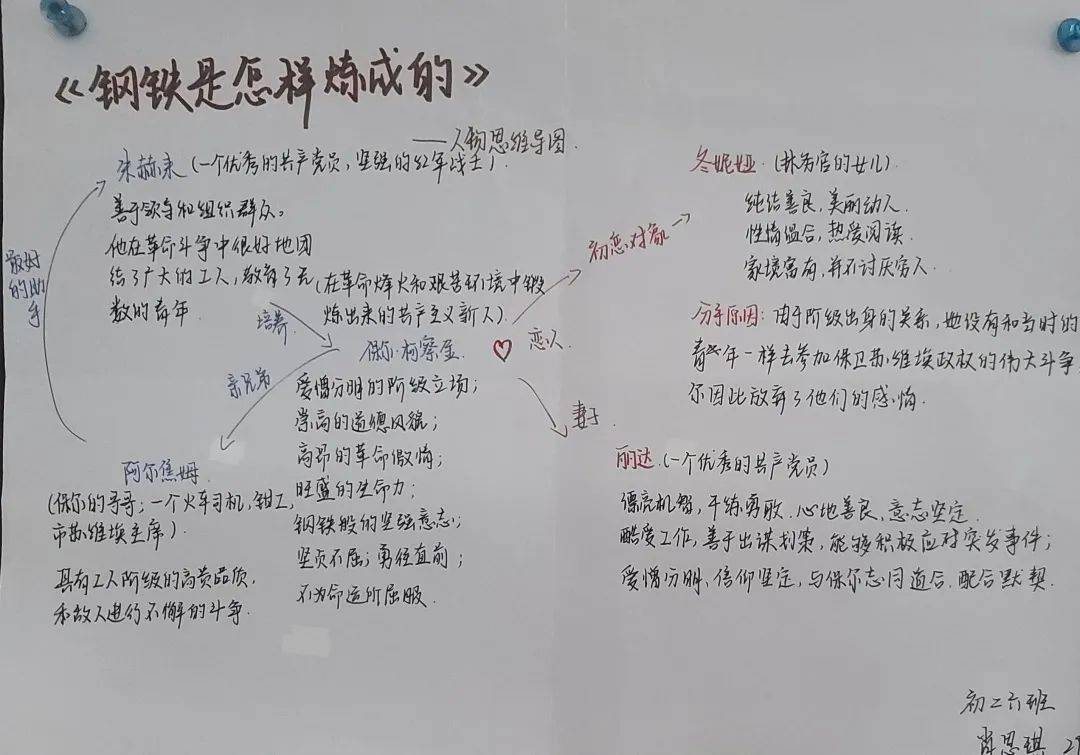 《钢铁是怎样炼成的》
——人物思维导图.
朱赫来(一个优秀的共产党员,坚强的红军战士).
善于领导和组织群众。
他在革命斗争中很好地团
结了广大的工人,教育了无
数的青年.
最好
的助
手
培养
亲兄弟
(在革命烽火和艰苦环境中锻
炼出来的共产主义新人).
保尔·柯察金
恋人
初恋对象
妻子
爱憎分明的阶级立场;
崇高的道德风貌;
高昂的革命激情;
旺盛的生命力;
钢铁般的坚强意志;
坚贞不屈;勇往直前;
不为命运所屈服.
阿尔焦姆.
(保尔的哥哥;一个火车司机,钳工,
市苏维埃主席).
具有工人阶级的高贵品质,
和敌人进行不懈的斗争.
冬妮娅.(林务官的女儿)
纯洁善良,美丽动人.
性情温合,热爱阅读.
家境富有,并不讨厌穷人.
分手原因:由于阶级出身的关系,她没有和当时的
青年一样去参加保卫苏维埃政权的伟大斗争
尔因此放弃了他们的感情.
丽达.(一个优秀的共产党员)
漂亮机智,干练勇敢.心地善良,意志坚定.
酷爱工作,善于出谋划策,能够积极应对突发事件;
爱憎分明、信仰坚定,与保尔志同道合.配合默契.
初二六班
肖思琪